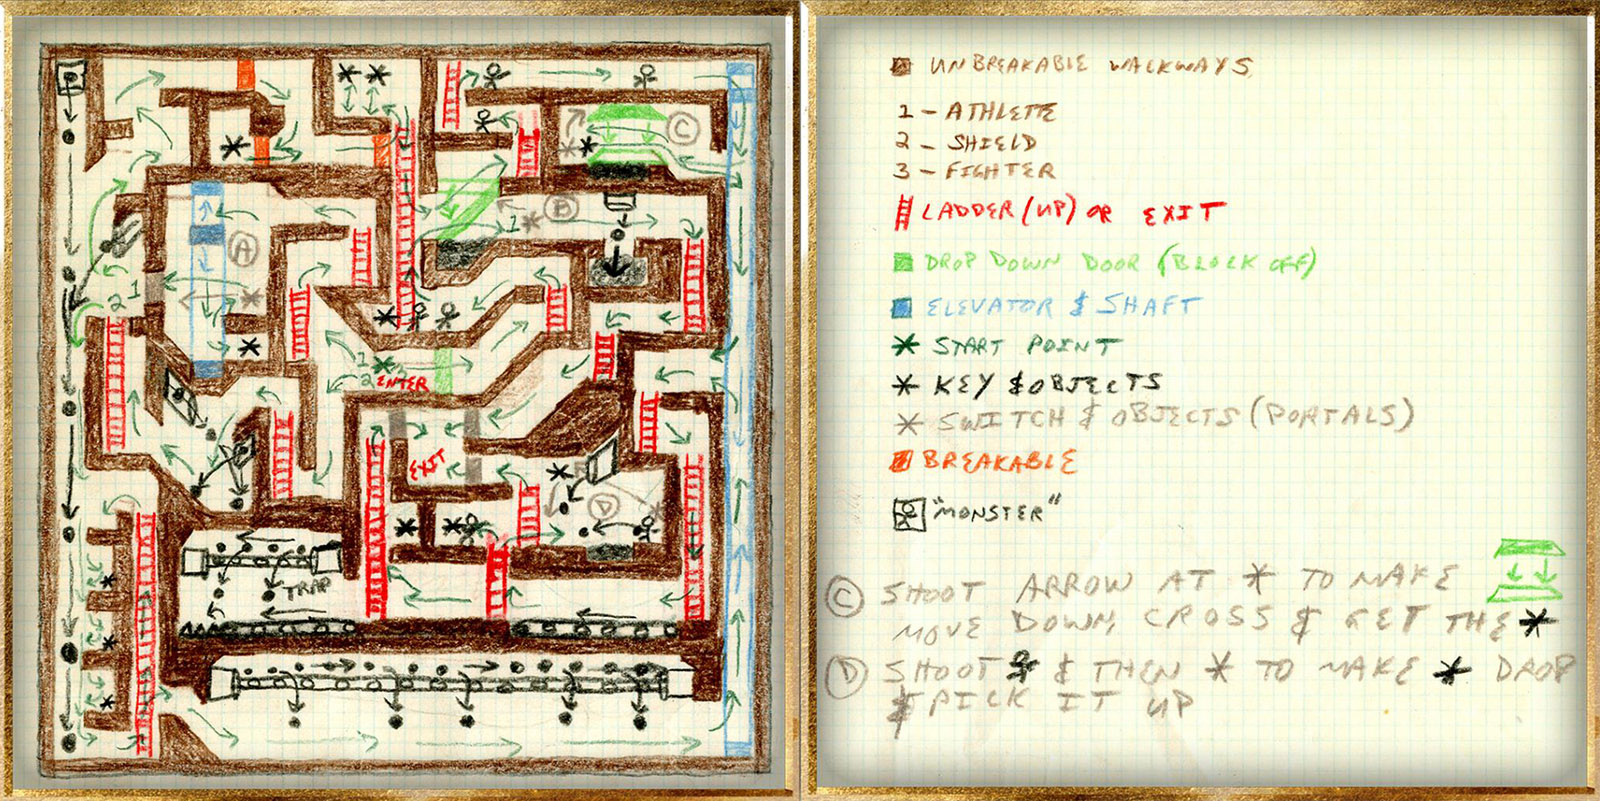 A
B
C
1
2 1
1
2
ENTER
EXIT
D
TRAP
UNBREAKABLE WALKWAYS
1 - ATHLETE
2 - SHIELD
3 - FIGHTER
LADDER (UP) OR EXIT
DROP DOWN DOOR (BLOCK OFF)
ELEVATOR & SHAFT
START POINT
KEY & OBJECTS
SWITCH & OBJECTS (PORTALS)
BREAKABLE
"MONSTER"
C SHOOT ARROW AT * TO MAKE
MOVE DOWN, CROSS & GET THE *
D SHOOT & THEN * TO MAKE * DROP
& PICK IT UP